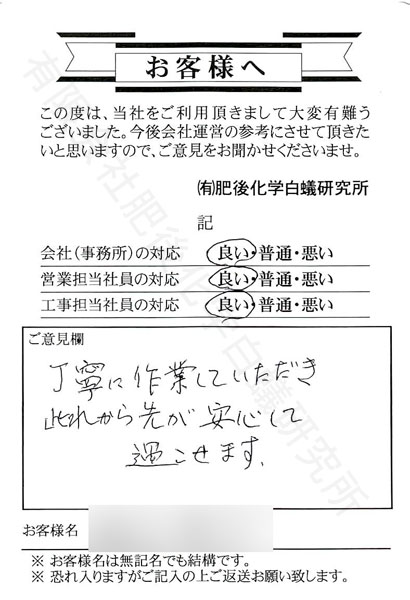 お客様へ
この度は、当社をご利用頂きまして大変有難う
ございました。今後会社運営の参考にさせて頂きた
いと思いますので、ご意見をお聞かせくださいませ。
㈲肥後化学白蟻研究所
記
会社（事務所）の対応 良い・普通・悪い
営業担当社員の対応 良い・普通・悪い
工事担当社員の対応 良い・普通・悪い
ご意見欄
丁寧に作業していただき
此れから先が安心して
過こせます。
お客様名
※ お客様名は無記名でも結構です。
※ 恐れ入りますがご記入の上ご返送お願い致します。
有限会社肥後化学白蟻研究所